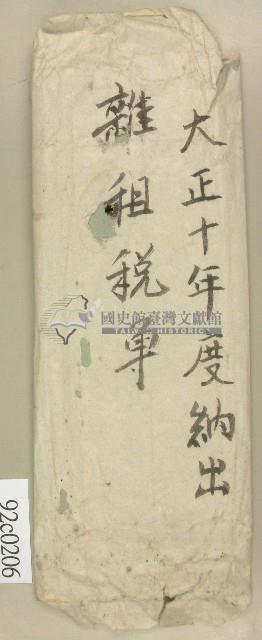 大正十年度納出
雜租稅單
國史館臺灣文獻館
TAIWAN HISTORICA
92c0206